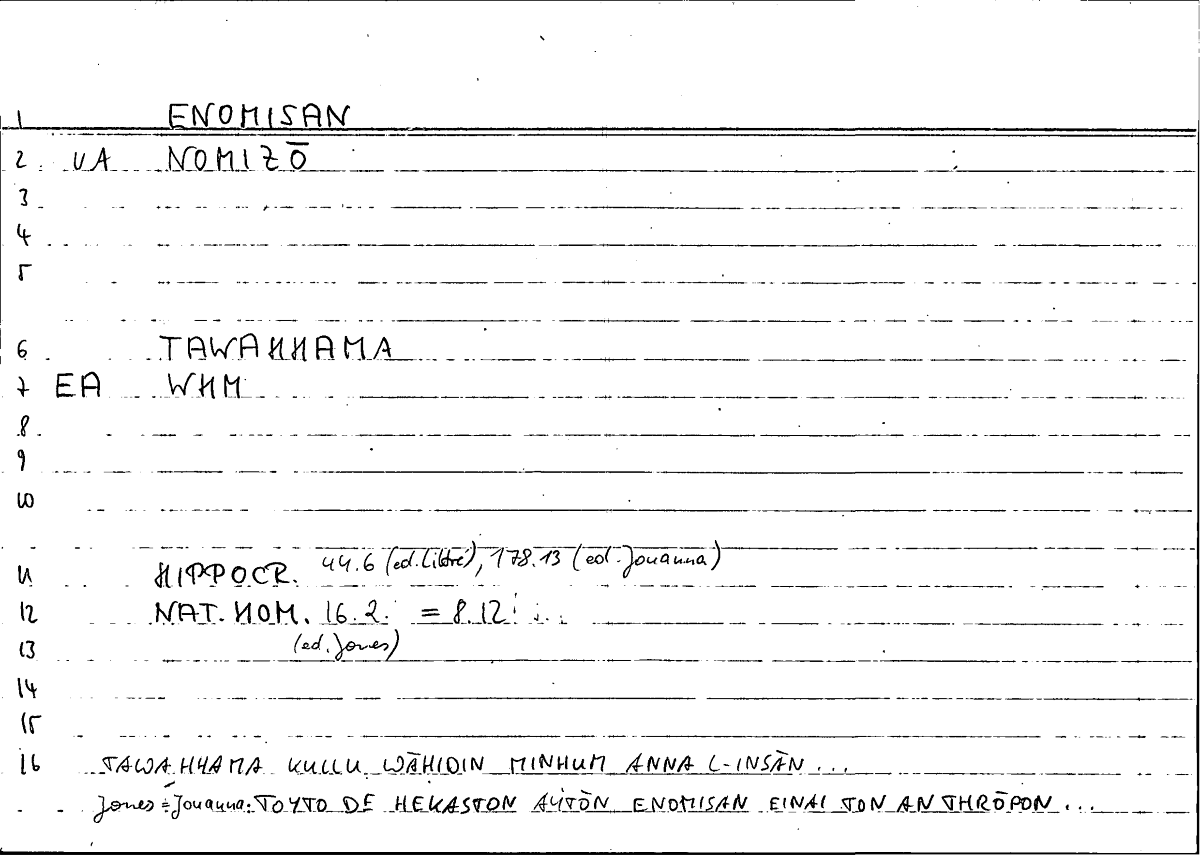 1 ENOMISAN
2 VA NOMIZŌ
3
4
5
6 TAWAHHAMA
7 EA WHM
8
9
10
11 HIPPOCR. 44.6 (ed. Littré), 178.13 (ed. Jouanna)
12 NAT. HOM. 16.2. = 8.12
13 (ed. Jones)
14
15
16 TAWAHHAMA KULLU WĀHIDIN MINHUM ANNA L-INSĀN ...
Jones = Jouanna: TOYTO DE HEKASTON AYTŌN ENOMISAN EINAI TON ANTHRŌPON ...